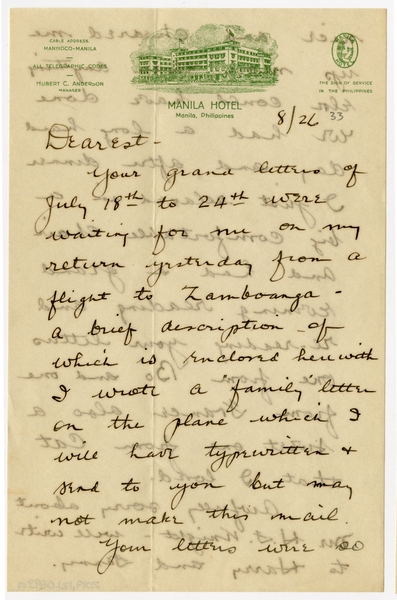 CABLE ADDRESS
MANHOCO-MANILA
ALL TELEGRAPHIC CODES
HUBERT C. ANDERSON
MANAGER
THE SIGN OF SERVICE
IN THE PHILIPPINES
MANILA HOTEL
Manila, Philippines
8/26 33
Dearest -
Your grand letters of
July 18th to 24th were
waiting for me on my
return yesterday from a
flight to Zamboanga -
a brief description of
which is enclosed herewith
I wrote a "family" letter
on the plane which I
will have typewritten &
send to you but may
not make this mail.
Your letters were so